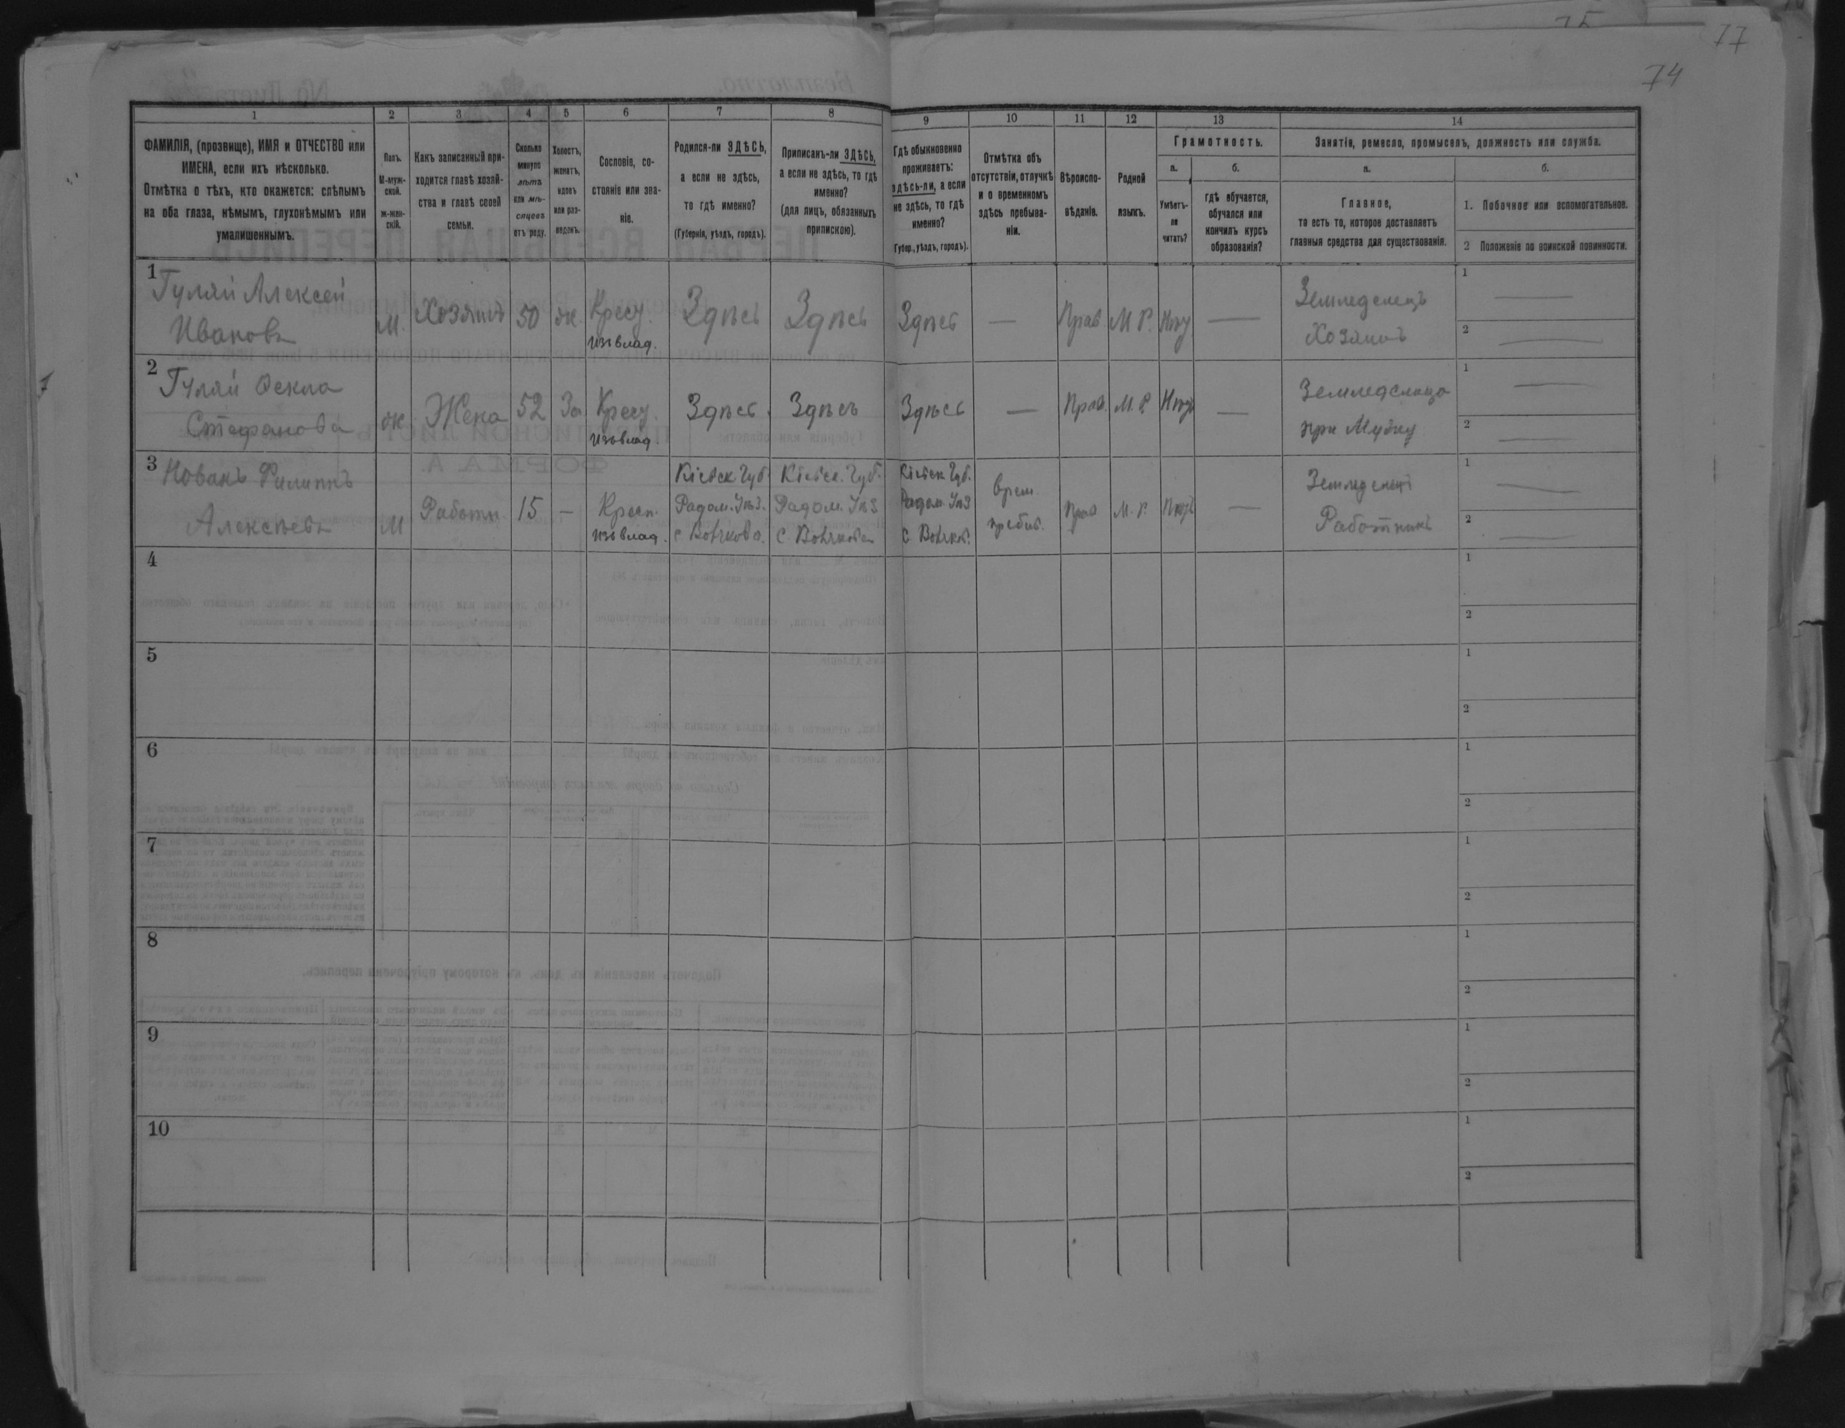 77
74
1 2 3 4 5 6 7 8 9 10 11 12 13 14
ФАМИЛІЯ, (прозвище), ИМЯ и ОТЧЕСТВО или
ИМЕНА, если ихъ нѣсколько.
Отмѣтка о тѣхъ, кто окажется: слѣпымъ
на оба глаза, нѣмымъ, глухонѣмымъ или
умалишеннымъ.
Полъ.
М-муж-
ской.
ж-жен-
скій.
Какъ записанный при-
ходится главѣ хозяй-
ства и главѣ своей
семьи.
Сколько
минуло
лѣтъ
или мѣ-
сяцевъ
отъ роду.
Холостъ,
женатъ,
вдовъ
или раз-
веденъ.
Сословіе, со-
стояніе или зва-
ніе.
Родился-ли ЗДѢСЬ,
а если не здѣсь,
то гдѣ именно?
(Губернія, уѣздъ, городъ).
Приписанъ-ли ЗДѢСЬ,
а если не здѣсь, то гдѣ
именно?
(для лицъ, обязанныхъ
припискою).
Гдѣ обыкновенно
проживаетъ:
здѣсь-ли, а если
не здѣсь, то гдѣ
именно?
(Губер., уѣздъ, городъ).
Отмѣтка объ
отсутствіи, отлучкѣ
и о временномъ
здѣсь пребыва-
ніи.
Вѣроиспо-
вѣданіе.
Родной
языкъ.
Грамотность.
а.
Умѣетъ-
ли
читать?
б.
гдѣ обучается,
обучался или
кончилъ курсъ
образованія?
Занятія, ремесло, промыселъ, должность или служба.
а.
Главное,
то есть то, которое доставляетъ
главныя средства для существованія.
б.
1. Побочное или вспомогательное.
2 Положеніе по воинской повинности.
1
Гуляй Алексей
Ивановъ
М.
Хозяинъ
50
ж.
Крест.
изъ влад.
Здѣсь
Здѣсь
Здѣсь
—
Прав.
М. Р.
Нѣт
—
Земледелецъ
Хозяинъ
1 —
2 —
2
Гуляй Фекла
Стефанова
ж
Жена
52
За
Крест.
изъ влад.
Здѣсь.
Здѣсь
Здѣсь
—
Прав.
М. Р.
Нѣтъ
—
Земледелица
при Мужу
1 —
2 —
3
Новакъ Филиппъ
Алексѣевъ
М
Работн.
15
—
Крест.
изъ влад.
Кіевск. Губ.
Радом. Уѣз.
Кіевск. Губ.
Радом. Уѣз
Кіевск Губ.
Радом. Уѣз
врем
пребыв.
Прав
М. Р.
Нѣтъ
—
Работникъ
1 —
2 —
4
1
2
5
1
2
6
1
2
7
1
2
8
1
2
9
1
2
10
1
2